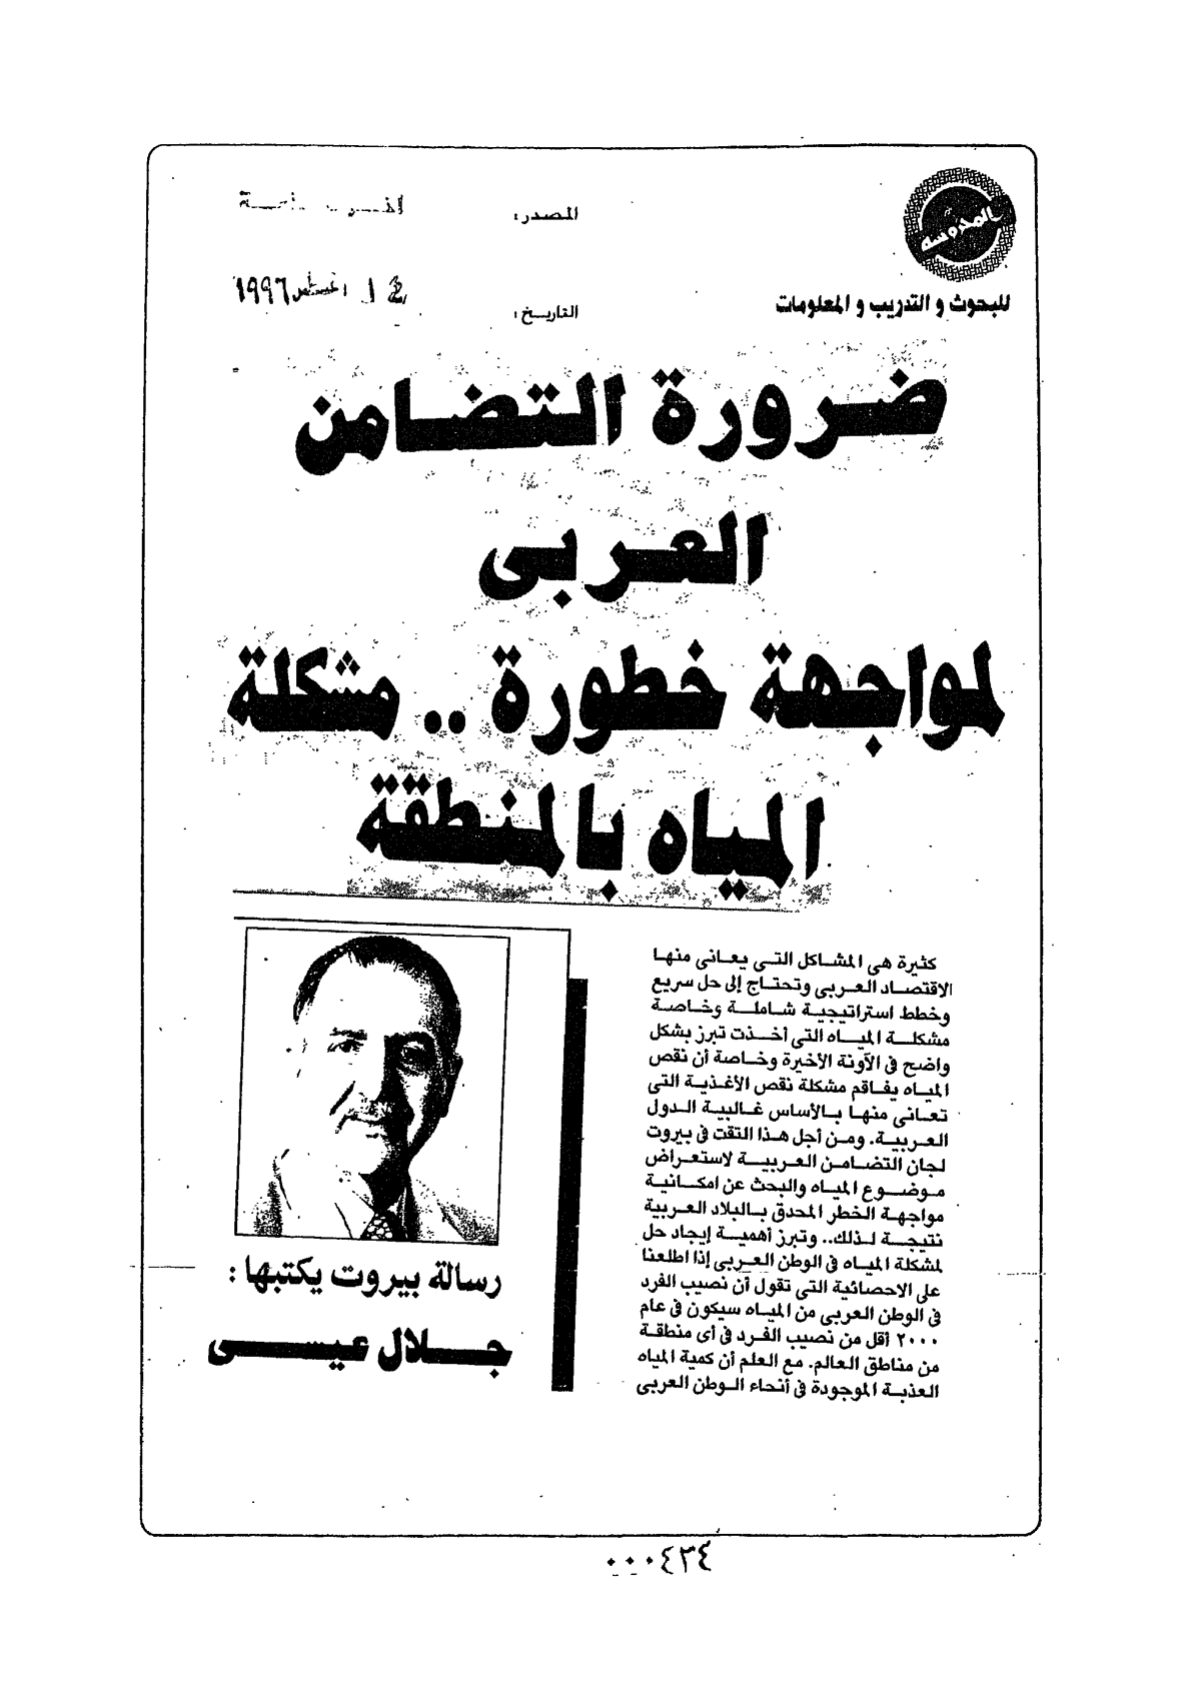 المحروسة
للبحوث و التدريب و المعلومات
المصدر:
التاريخ:
أغسطس ١٩٩٦
ضرورة التضامن
العربى
لمواجهة خطورة .. مشكلة
المياه بالمنطقة
كثيرة هى المشاكل التى يعانى منها
الاقتصاد العربى وتحتاج إلى حل سريع
وخطط استراتيجية شاملة وخاصة
مشكلة المياه التى أخذت تبرز بشكل
واضح فى الآونة الأخيرة وخاصة أن نقص
المياه يفاقم مشكلة نقص الأغذية التى
تعانى منها بالأساس غالبية الدول
العربية. ومن أجل هذا التقت فى بيروت
لجان التضامن العربية لاستعراض
موضوع المياه والبحث عن امكانية
مواجهة الخطر المحدق بالبلاد العربية
نتيجة لذلك.. وتبرز أهمية إيجاد حل
لمشكلة المياه فى الوطن العربى إذا اطلعنا
على الاحصائية التى تقول أن نصيب الفرد
فى الوطن العربى من المياه سيكون فى عام
٢٠٠٠ أقل من نصيب الفرد فى أى منطقة
من مناطق العالم. مع العلم أن كمية المياه
العذبة الموجودة فى أنحاء الوطن العربى
رسالة بيروت يكتبها :
جلال عيسى
٠٠٠٤٣٤